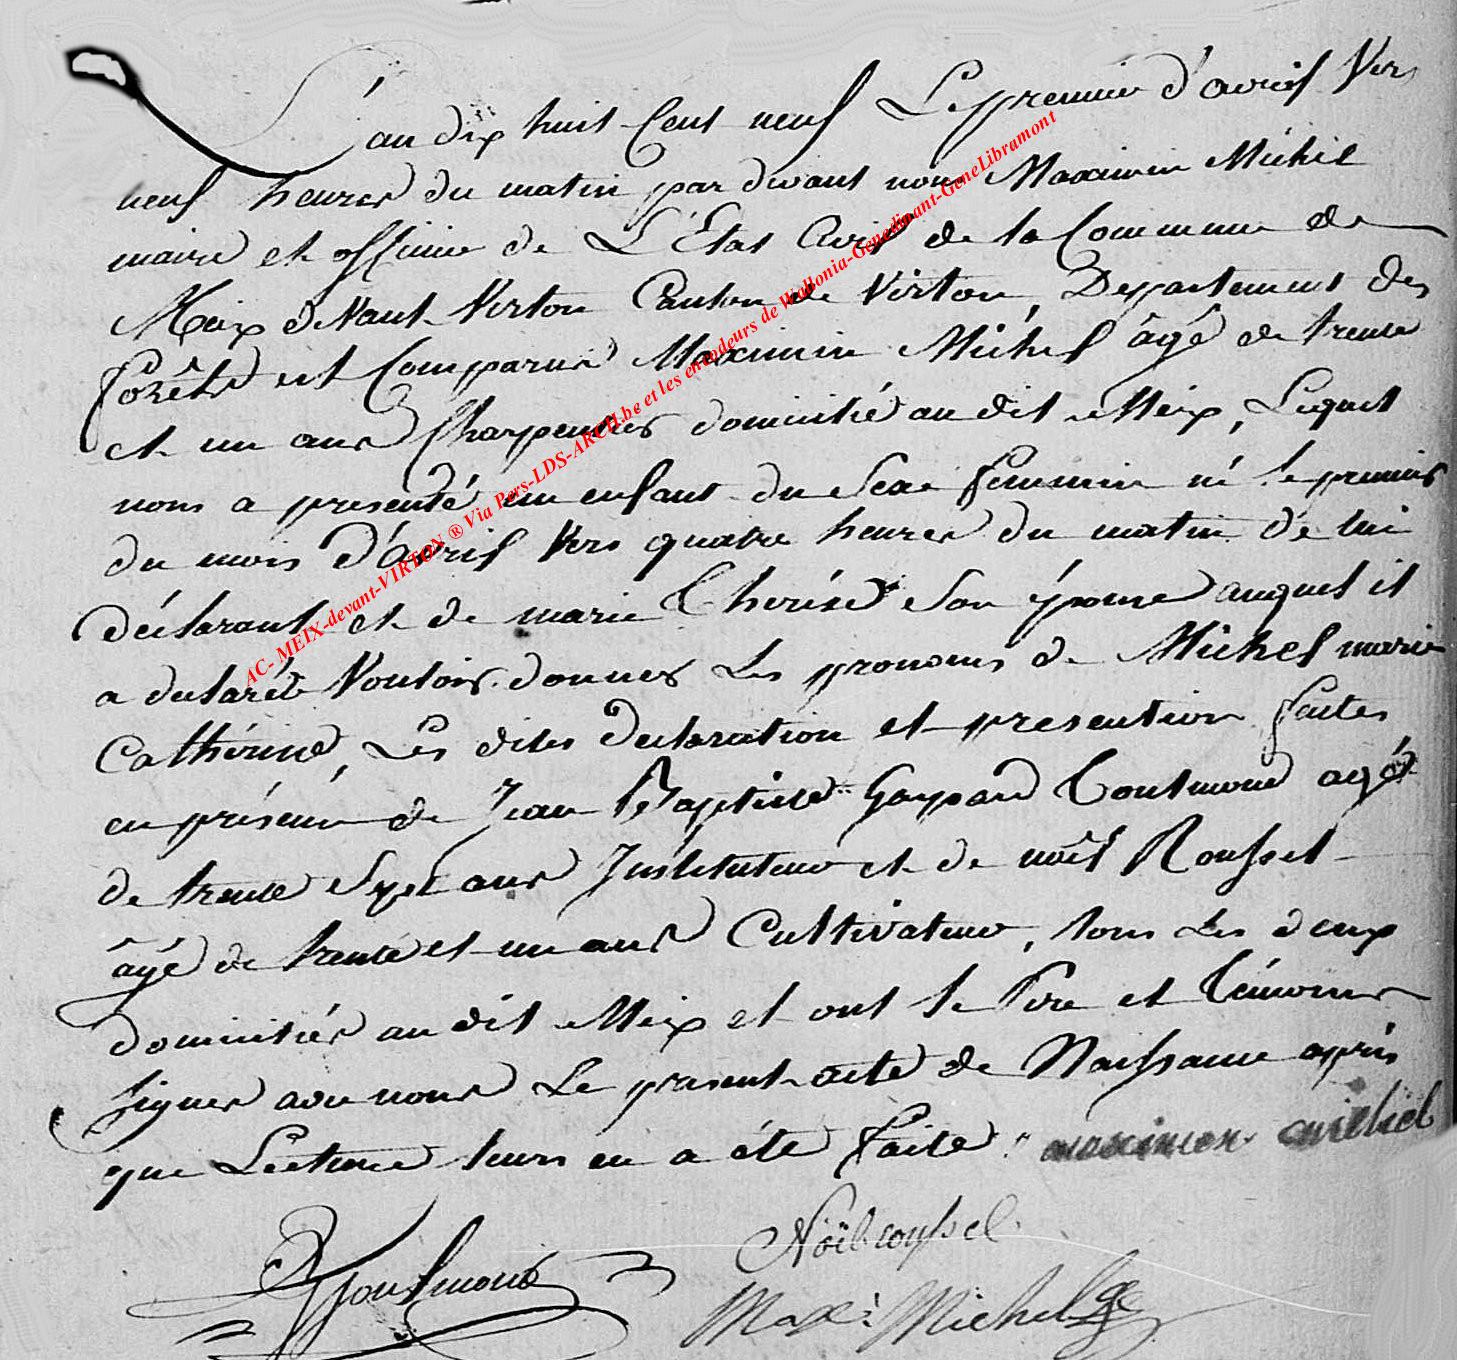 L'an dix huit Cent neuf Le premier d'avril Vers
neuf heures du matin par devant nous Maximin Michel
maire et officier de L'Etat Civil de la Commune de
Meix devant Virton Canton de Virton, Departement des
forêts est Comparus Maximin Michel âgé de trente
et un ans Charpentier domicilié au dit Meix, Lequel
nous a presenté un enfant du Sexe feminin né le premier
du mois d'avril Vers quatre heures du matin de lui
déclarant et de marie Therése Son épouse auquel il
a declaré Vouloir donner Les pronoms de Michel marie
Cathérine, Les dites Declaration et presention faites
en présence de Jean Baptiste Gaspard Toulmond agé
de trente Sept ans Instituteur et de noël Roussel
âgé de trente et un ans Cultivateur, tous Les deux
domiciliés au dit Meix et ont le Pere et Témoins
signés avec nous Le present acte de Naissance après
que Lecture leurs en a été faite maximien michel
Toulmond
Noël roussel
Max: Michel
AC- MEIX-devant-VIRTON ® Via Pers-LDS-ARCH.be et les encodeurs de Wallonia-Genedinant-GeneLibramont